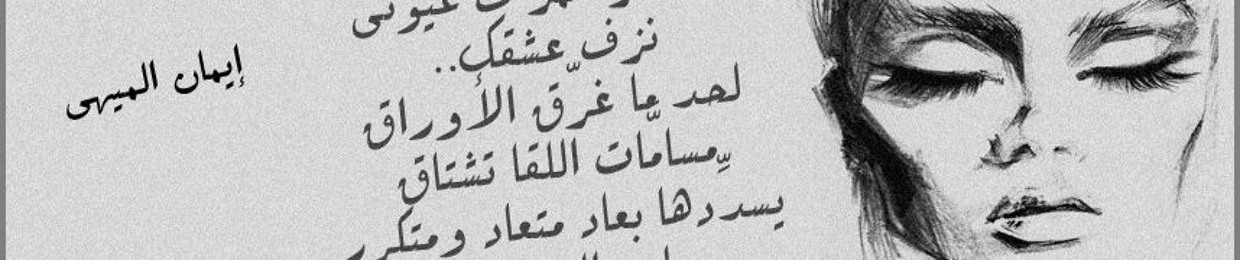 عيونى
نزف عشقك..
لحد ما غرّق الأوراق
مسامّات اللقا تشتاق
يسددها بعاد متعاد ومتكرر
إيمان الميهى